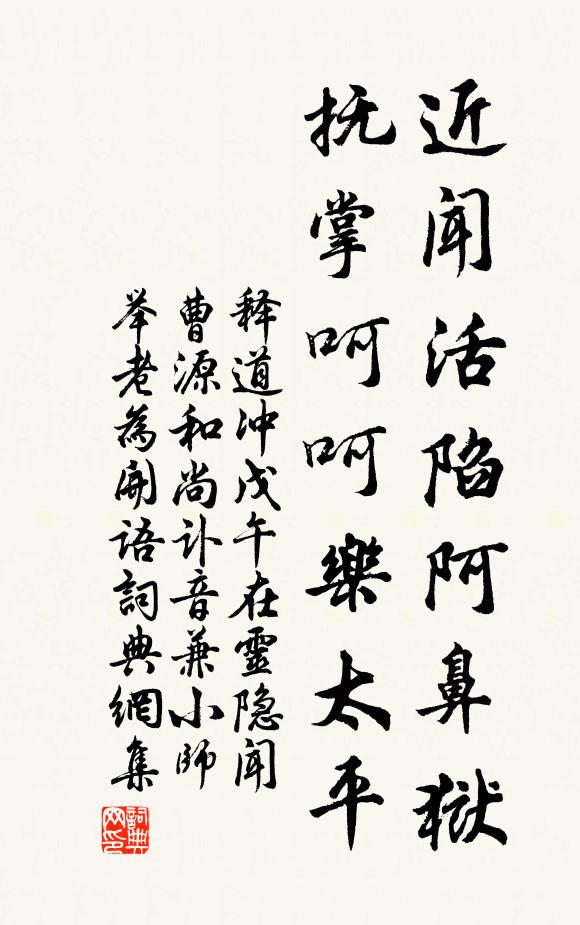 近闻活陷阿鼻狱
抚掌呵呵樂太平
释道冲戊午在靈隐闻
曹源和尚讣音兼小师
举老為開语詞典網集
詞典网印